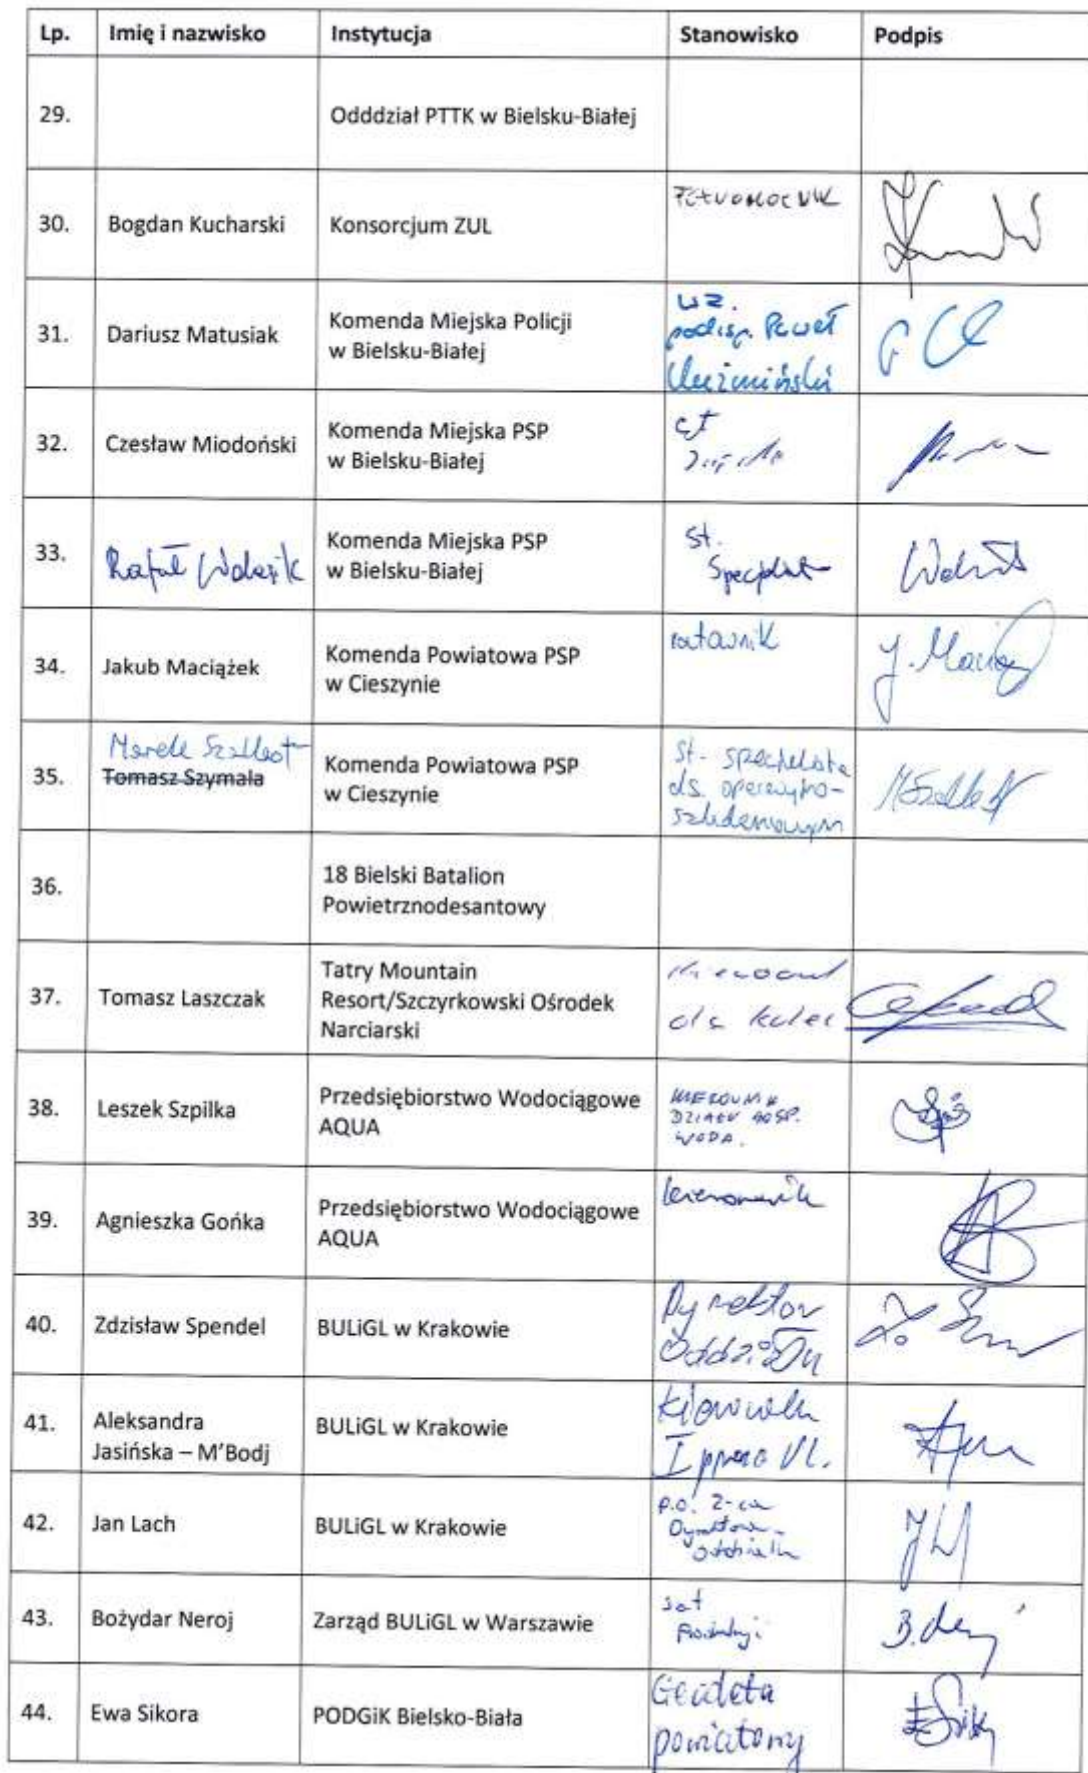 Lp. Imię i nazwisko Instytucja Stanowisko Podpis
29. Odddział PTTK w Bielsku-Białej
30. Bogdan Kucharski Konsorcjum ZUL
31. Dariusz Matusiak Komenda Miejska Policji
w Bielsku-Białej
wz.
podisp. Paweł
32. Czesław Miodoński Komenda Miejska PSP
w Bielsku-Białej
33. Rafał Komenda Miejska PSP
w Bielsku-Białej
st.
34. Jakub Maciążek Komenda Powiatowa PSP
w Cieszynie
ratownik
J.
35. Marek
Tomasz Szymala
Komenda Powiatowa PSP
w Cieszynie
st. specjalista
ds. operacyjno-
szkoleniowym
36. 18 Bielski Batalion
Powietrznodesantowy
37. Tomasz Laszczak Tatry Mountain
Resort/Szczyrkowski Ośrodek
Narciarski
38. Leszek Szpilka Przedsiębiorstwo Wodociągowe
AQUA
KIEROWNIK
DZIAŁU GOSP.
WODA.
39. Agnieszka Gońka Przedsiębiorstwo Wodociągowe
AQUA
kierownik
40. Zdzisław Spendel BULiGL w Krakowie
Dyrektor
Oddziału
41. Aleksandra
Jasińska – M'Bodj
BULiGL w Krakowie
42. Jan Lach BULiGL w Krakowie
p.o. Z-ca
Dyrektora
Oddziału
43. Bożydar Neroj Zarząd BULiGL w Warszawie
B.
44. Ewa Sikora PODGiK Bielsko-Biała
Geodeta
powiatowy